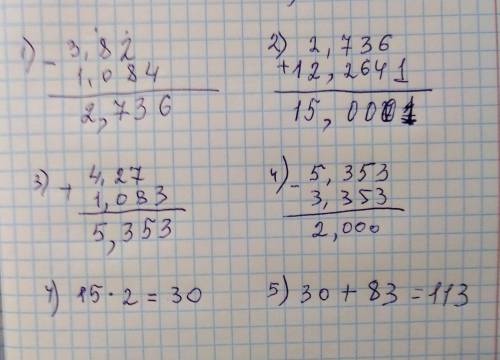 1) - 3,82
1,084
2,736
2) 2,736
+12,2641
15,0001
3) + 4,27
1,083
5,353
4) - 5,353
3,353
2,000
4) 15 · 2 = 30
5) 30 + 83 = 113